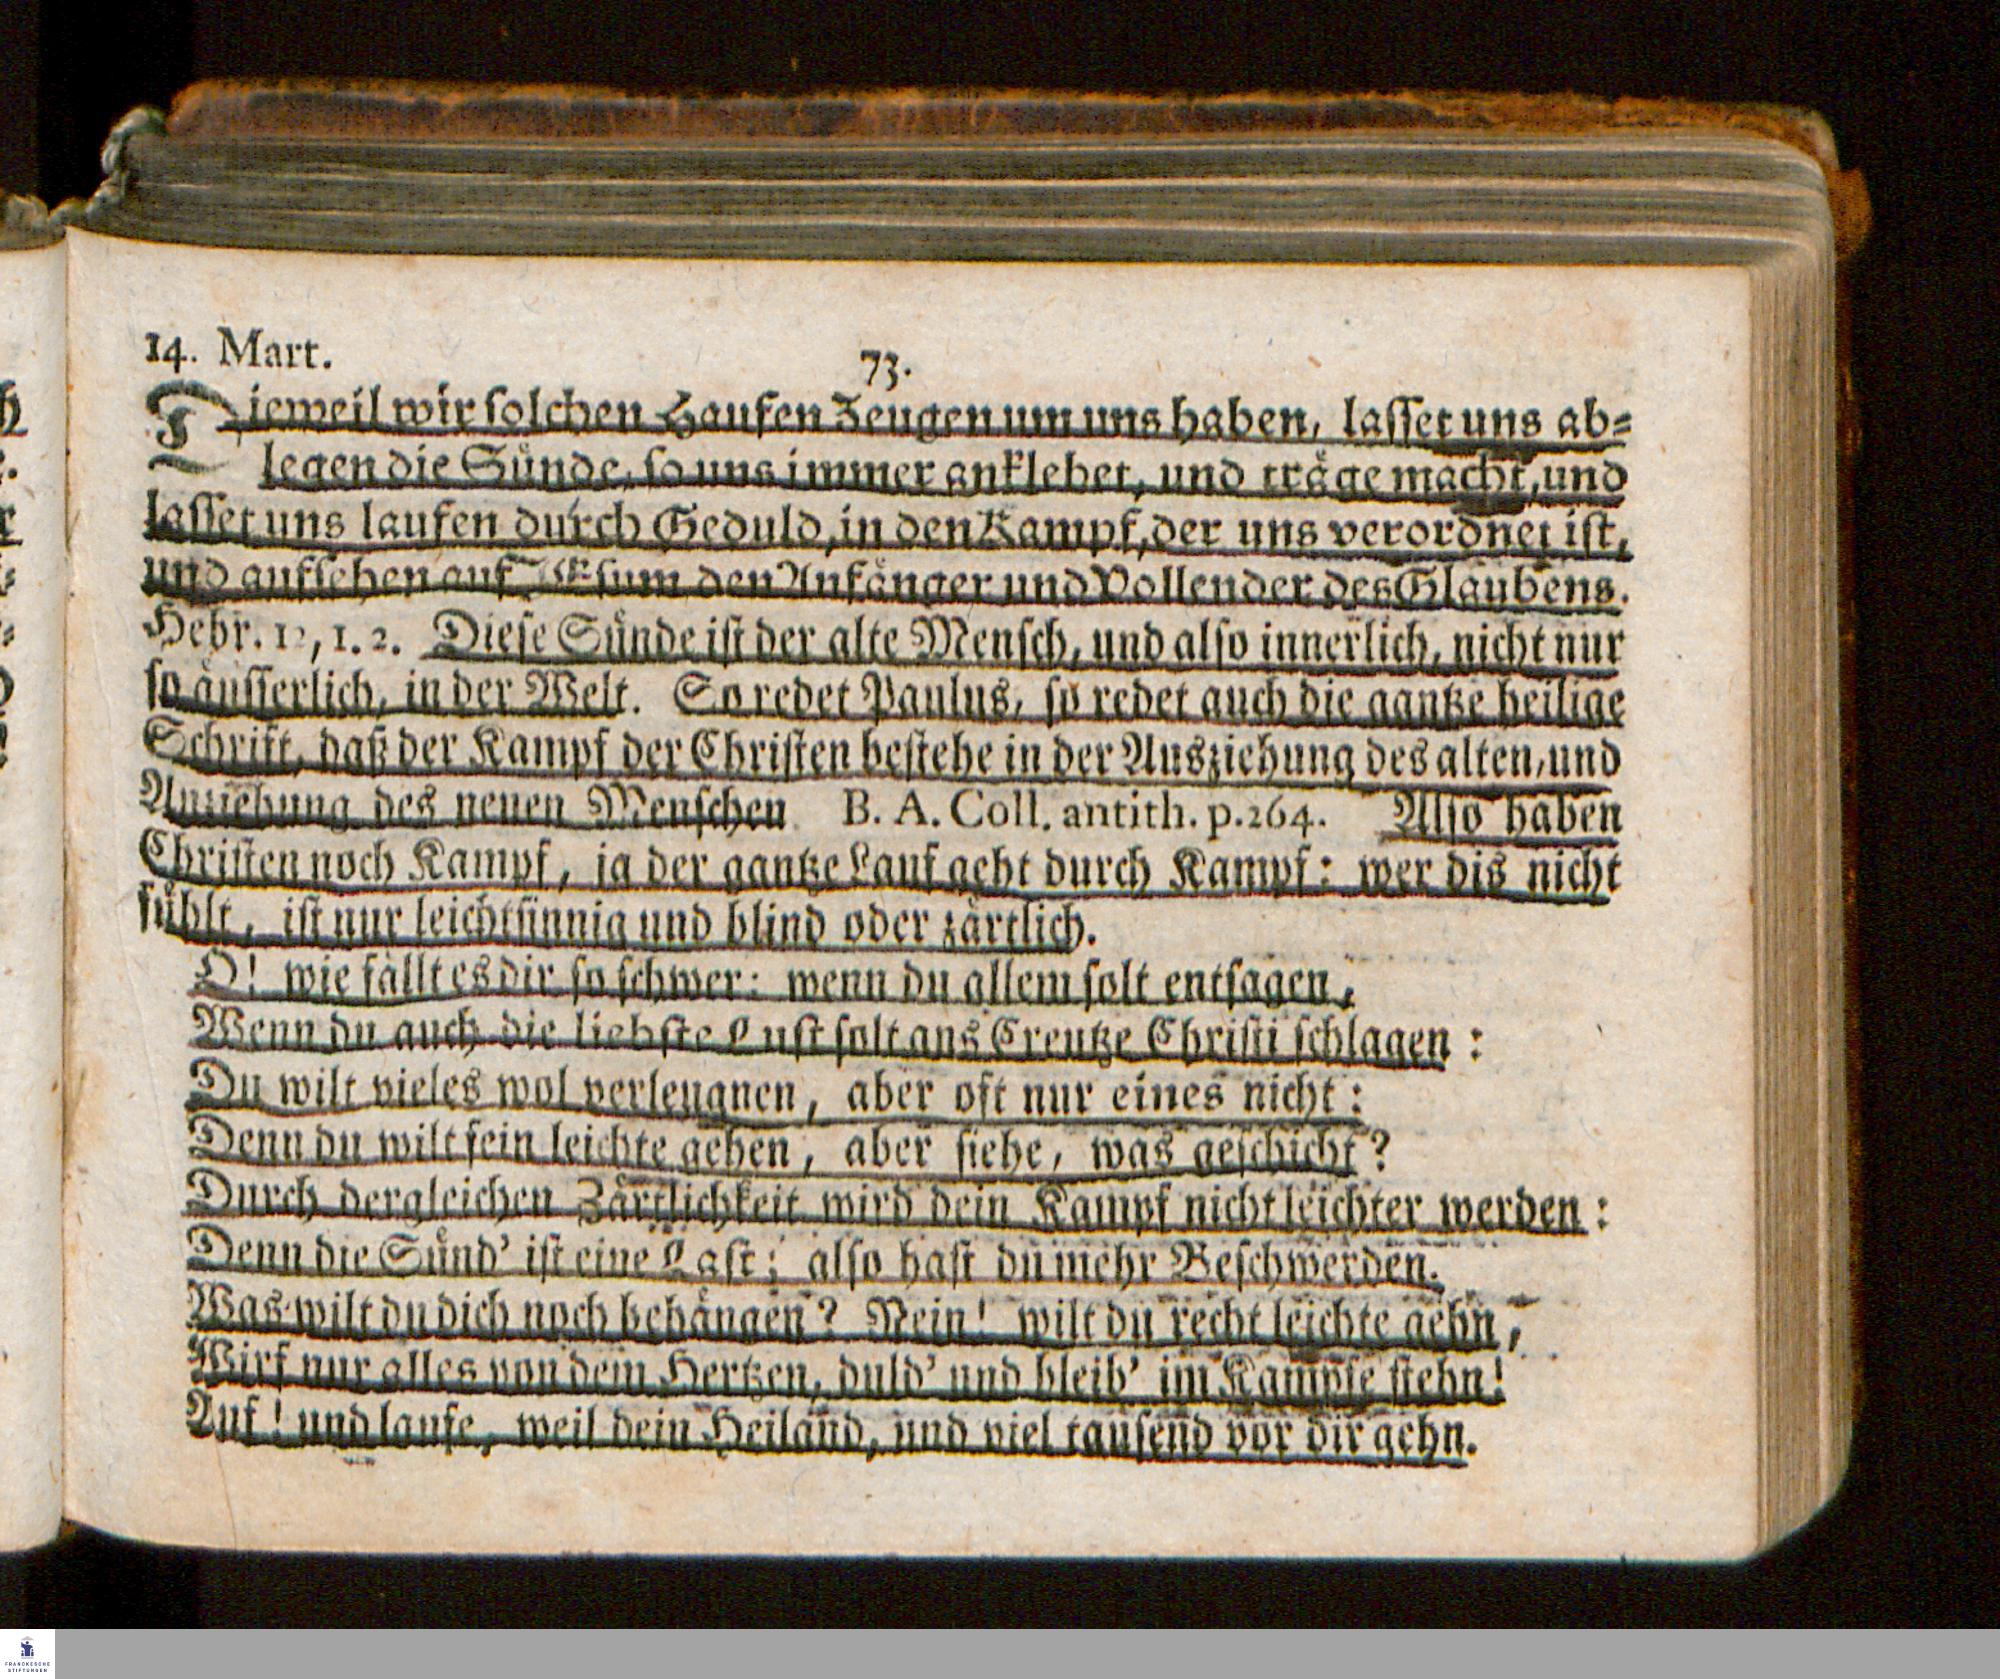 14. Mart.
73.
Dieweil wir solchen Haufen Zeugen um uns haben, lasset uns ab-
legen die Sünde, so uns immer anklebet, und träge macht, und
lasset uns laufen durch Geduld, in den Kampf, der uns verordnet ist,
und aufsehen auf JEsum den Anfänger und Vollender des Glaubens.
Hebr. 12, 1. 2. Diese Sünde ist der alte Mensch, und also innerlich, nicht nur
so äusserlich, in der Welt. So redet Paulus, so redet auch die gantze heilige
Schrift, daß der Kampf der Christen bestehe in der Ausziehung des alten, und
Anziehung des neuen Menschen B. A. Coll. antith. p. 264. Also haben
Christen noch Kampf, ja der gantze Lauf geht durch Kampf: wer dis nicht
fühlt, ist nur leichtsinnig und blind oder zärtlich.
O! wie fällt es dir so schwer: wenn du allem solt entsagen,
Wenn du auch die liebste Lust solt ans Creutze Christi schlagen:
Du wilt vieles wol verleugnen, aber oft nur eines nicht:
Denn du wilt fein leichte gehen, aber siehe, was geschicht?
Durch dergleichen Zärtlichkeit wird dein Kampf nicht leichter werden:
Denn die Sünd' ist eine Last; also hast du mehr Beschwerden.
Was wilt du dich noch behängen? Nein! wilt du recht leichte gehn,
Wirf nur alles von dem Hertzen, duld' und bleib' im Kampfe stehn!
Auf! und laufe, weil dein Heiland, und viel tausend vor dir gehn.
FRANCKESCHE
STIFTUNGEN